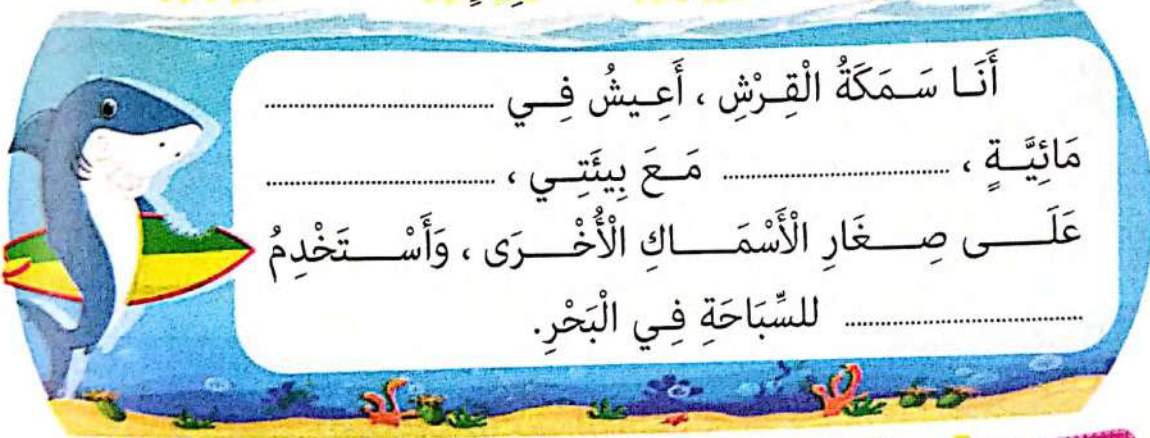 أَنَا سَمَكَةُ الْقِرْشِ ، أَعِيشُ فِي ........................
مَائِيَّةٍ ، ........................ مَعَ بِيئَتِي ، ........................
عَلَى صِغَارِ الْأَسْمَاكِ الْأُخْرَى ، وَأَسْتَخْدِمُ
........................ للسِّبَاحَةِ فِي الْبَحْرِ.